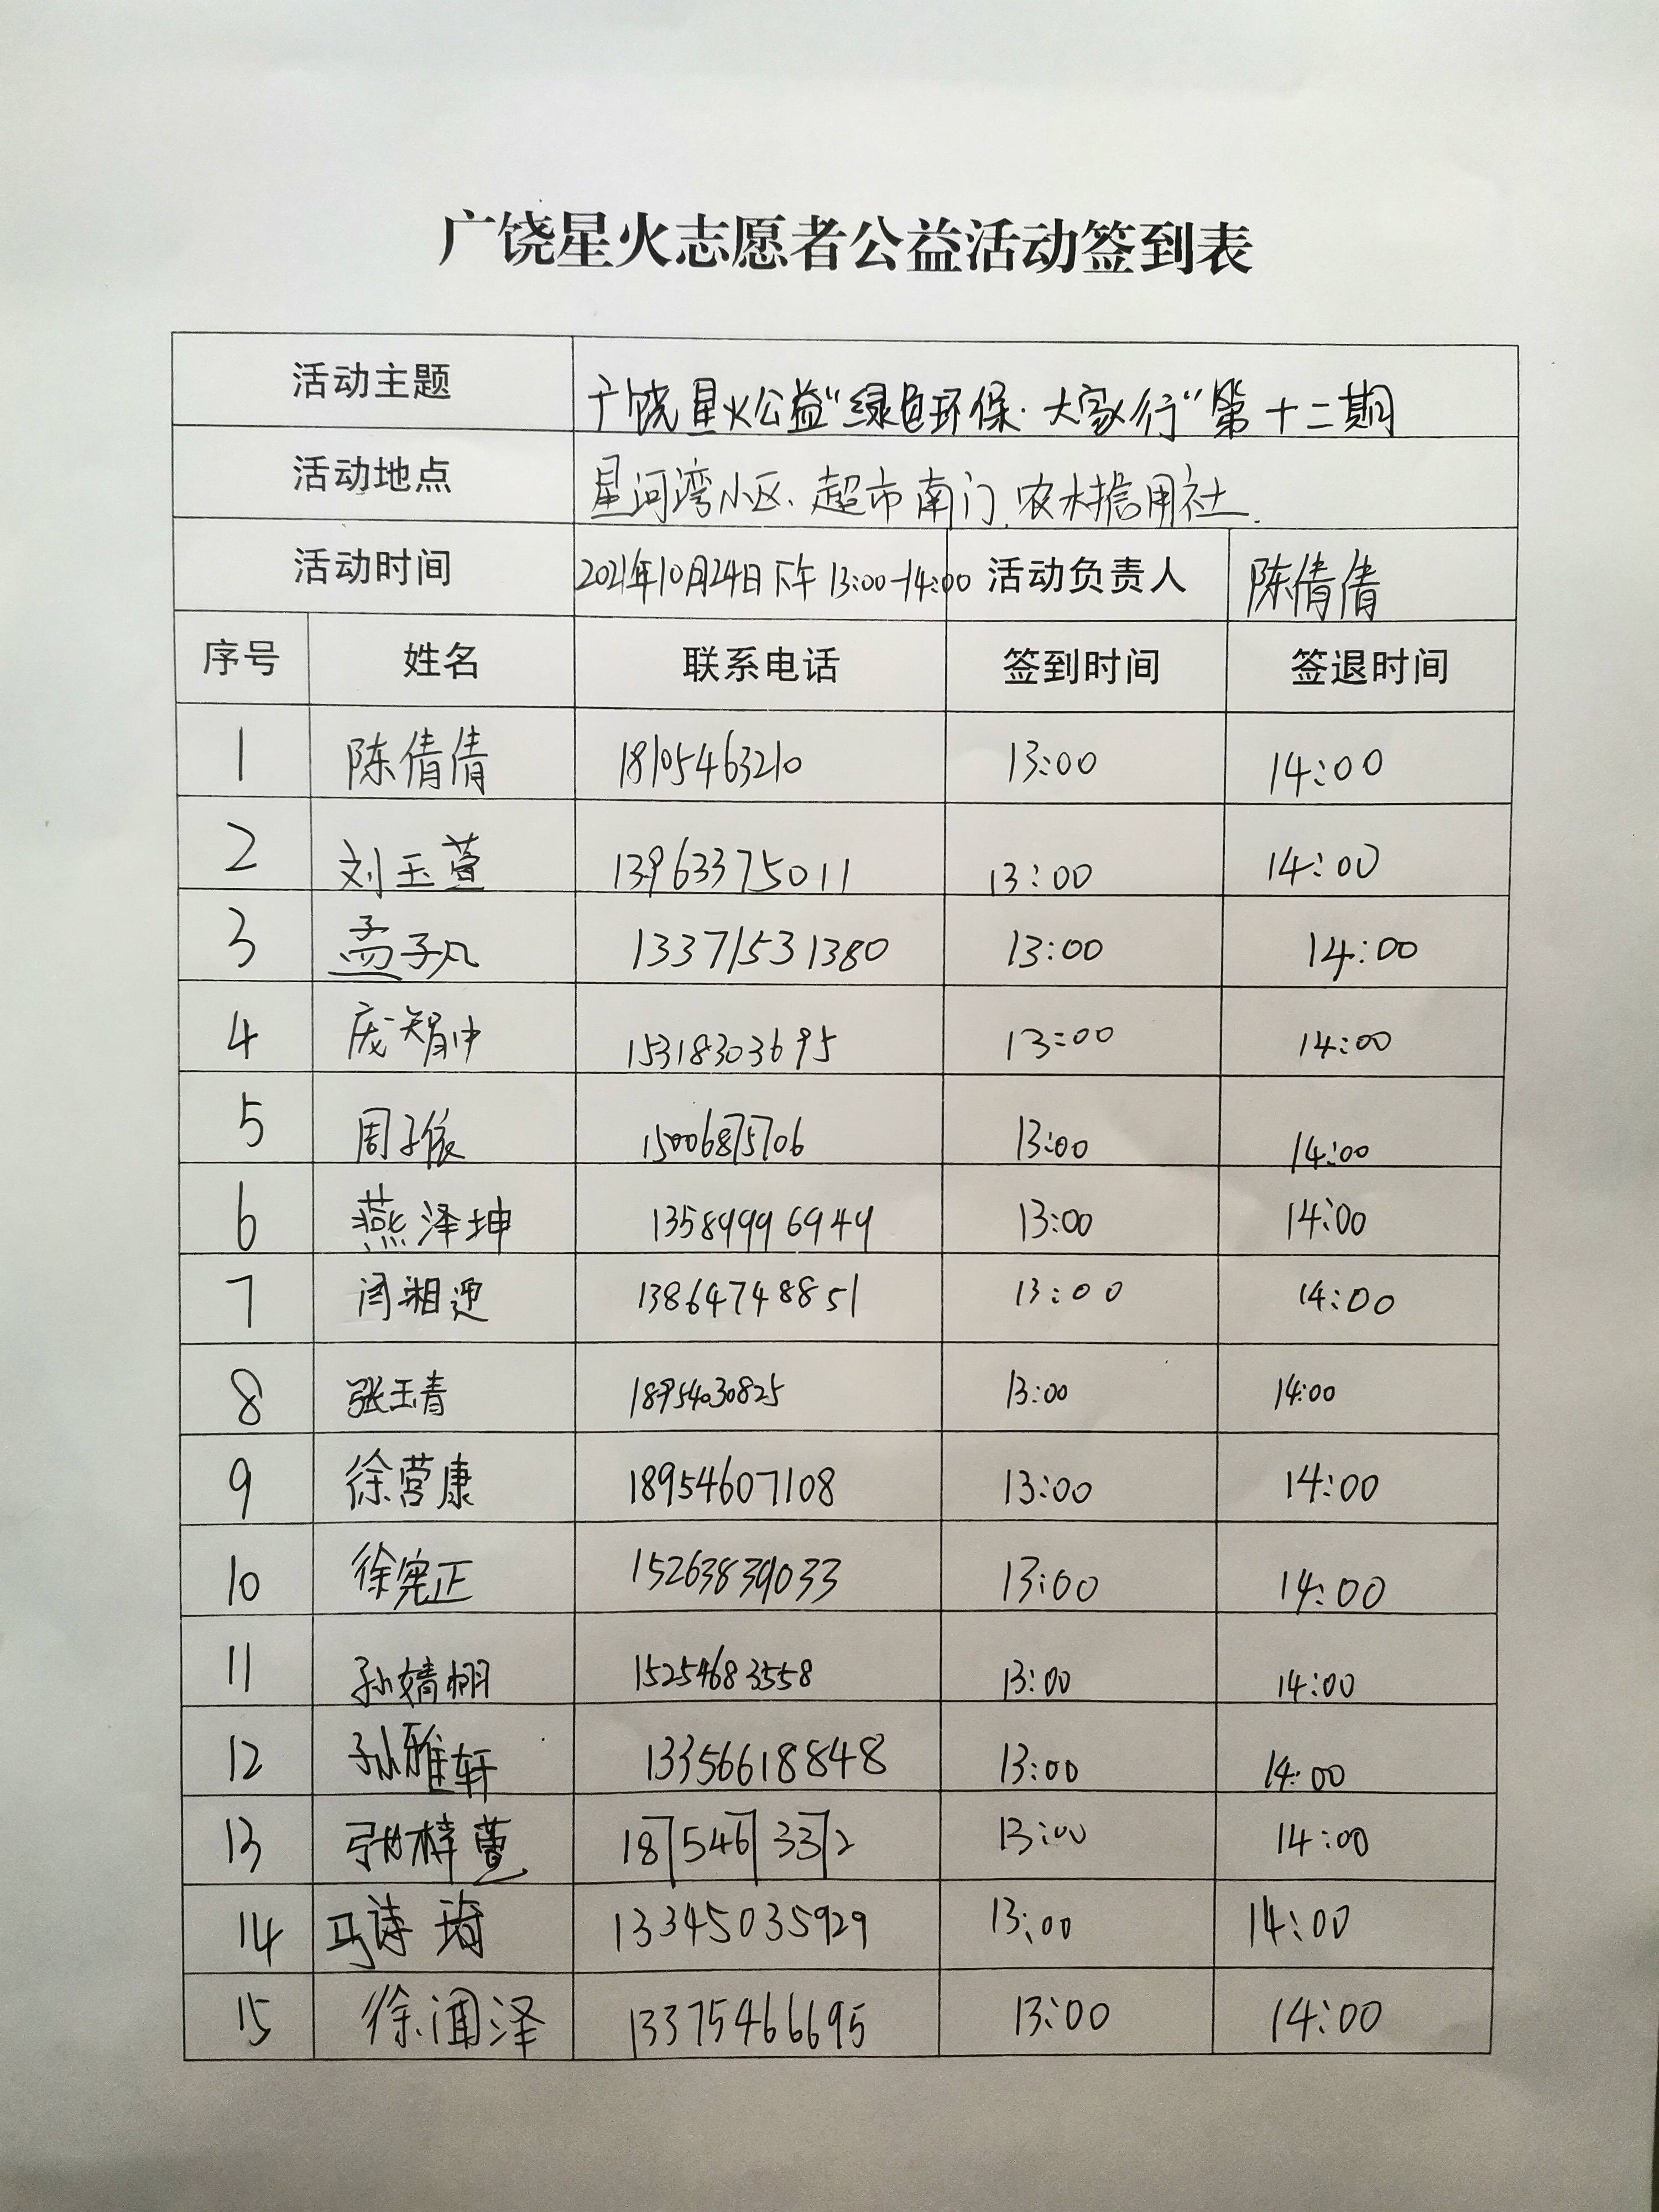 广饶星火志愿者公益活动签到表
活动主题 广饶星火公益“绿色环保·大家行”第十二期
活动地点 星河湾小区、超市南门、农村信用社.
活动时间 2021年10月24日下午13:00-14:00 活动负责人 陈倩倩
序号 姓名 联系电话 签到时间 签退时间
1 陈倩倩 18105463210 13:00 14:00
2 刘玉萱 13963375011 13:00 14:00
3 孟子凡 13371531380 13:00 14:00
4 庞智中 15318303695 13:00 14:00
5 周子依 15006875706 13:00 14:00
6 燕泽坤 13589996949 13:00 14:00
7 闫湘迎 13864748851 13:00 14:00
8 张玉青 18954030825 13:00 14:00
9 徐营康 18954607108 13:00 14:00
10 徐宪正 15263839033 13:00 14:00
11 孙婧栩 15254683558 13:00 14:00
12 孙雅轩 13356618848 13:00 14:00
13 张梓萱 18754673372 13:00 14:00
14 马诗琦 13345035929 13:00 14:00
15 徐闻泽 13375466695 13:00 14:00